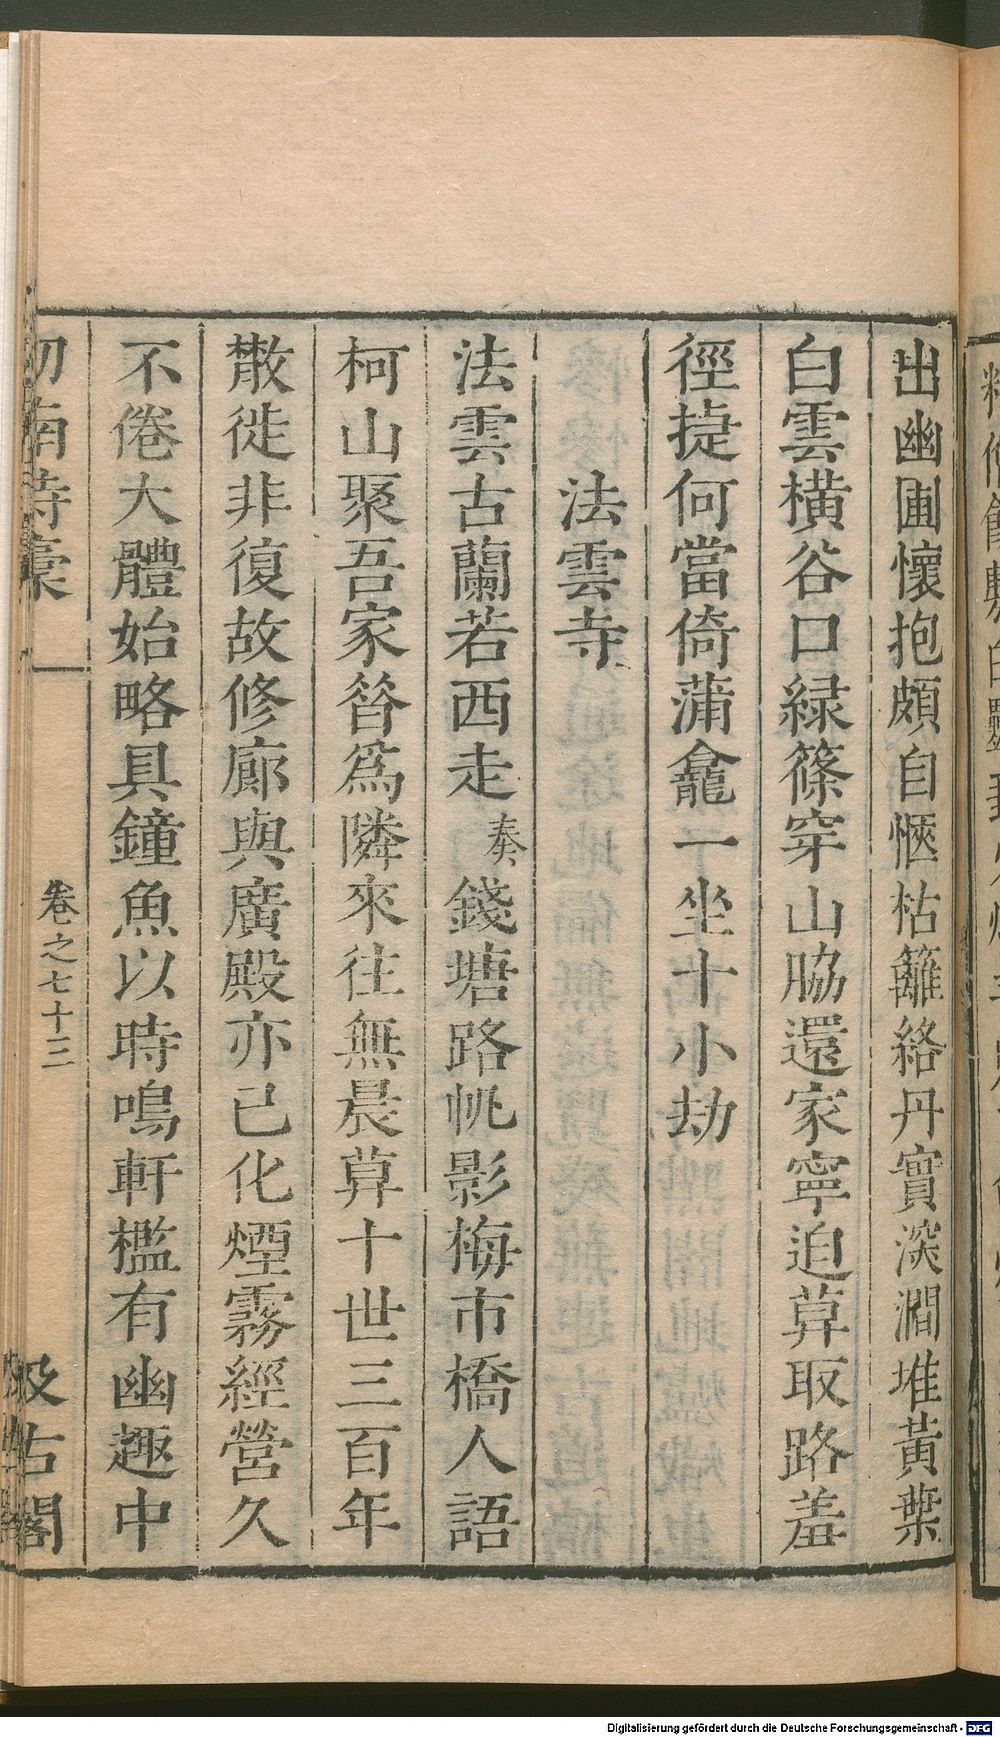 出幽圃懷抱頗自愜枯籬絡丹實深澗堆黃葉
白雲橫谷口緑篠穿山脇還家寧迫算取路羞
徑㨗何當倚蒲龕一坐十小劫
法雲寺
法雲古蘭若西走奏錢塘路帆影梅市橋人語
柯山聚吾家昝爲隣來往無晨莫十世三百年
散徙非復故修廊與廣殿亦已化煙霧經營久
不倦大體始略具鐘魚以時鳴軒檻有幽趣中
劒南詩藳
卷之七十三
汲古閣
Digitalisierung gefördert durch die Deutsche Forschungsgemeinschaft - DFG